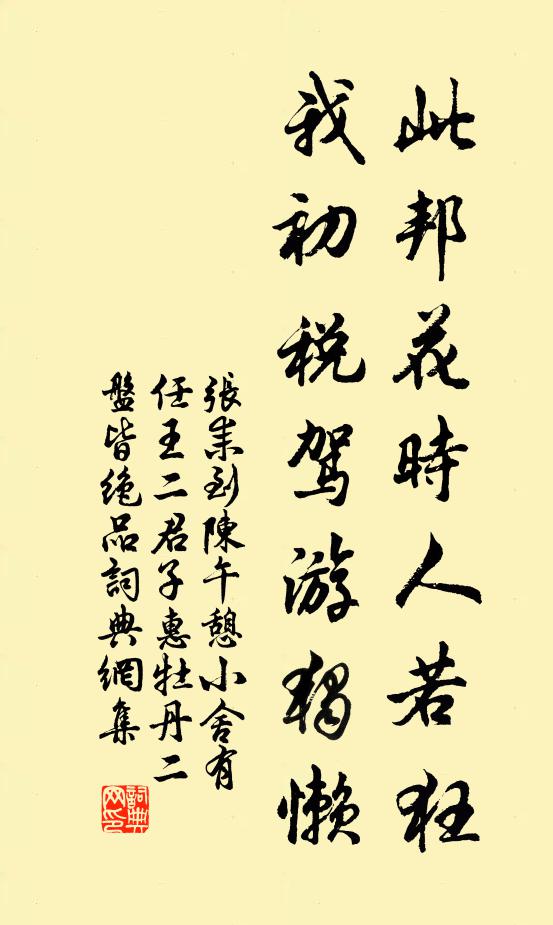 此邦花時人若狂
我初税駕游獨懶
張耒到陳午憩小舍有
任王二君子惠牡丹二
盤皆絶品詞典網集
詞典
网印